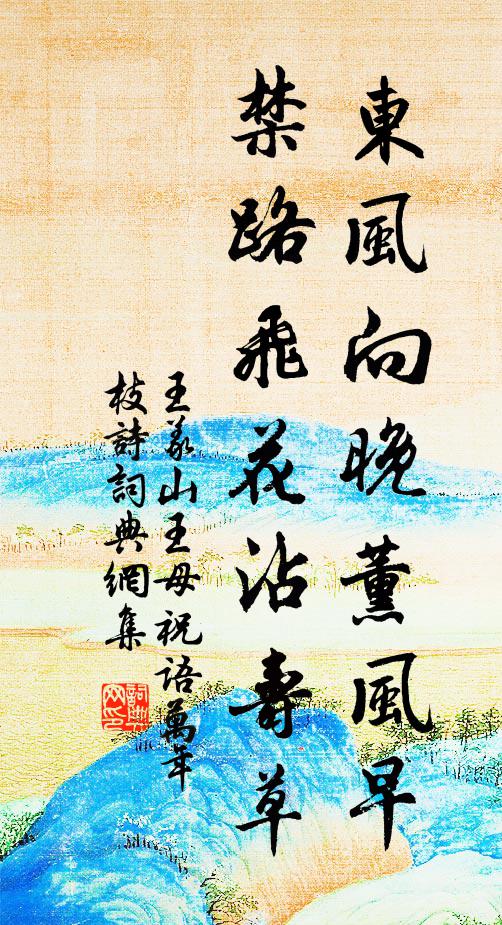 東風向晚薰風早
禁路飛花沾壽草
王義山王母祝語萬年
枝詩詞典網集